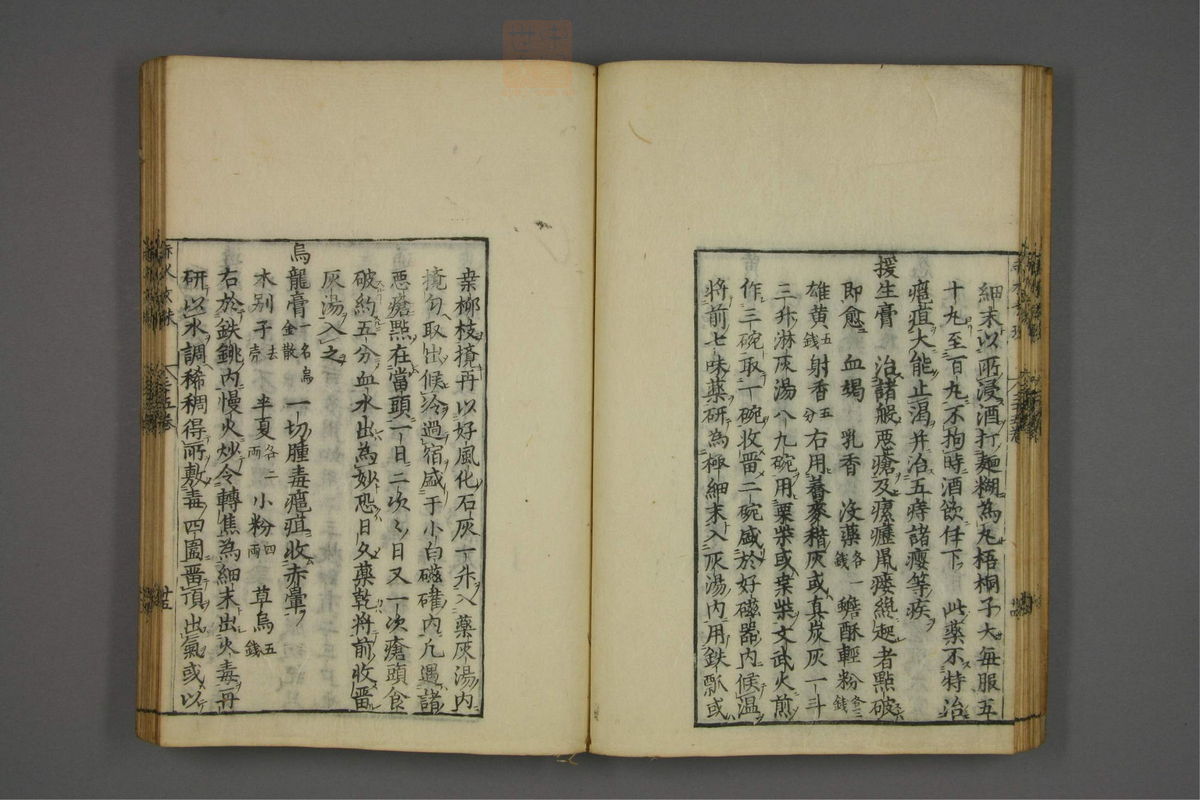 細末以所浸酒打麺糊為丸梧桐子大毎服五
十丸至百丸不拘時酒飲任下　此薬不特治
癰疽大能止渴并治五痔諸癭等疾
援生膏　治諸般悪瘡及瘰癧鼠瘻纔起者點破
即愈　血竭　乳香　没薬各一錢　蟾酥輕粉各三錢
雄黄五錢射香五分右用蕎麥稭灰或真炭灰一斗
三升淋灰湯八九碗用栗柴或桒柴文武火煎
作三碗取一碗收畱二碗盛於好磁器内候温
将前七味薬研為極細末入灰湯内用鉄瓢或
桒柳枝攪再以好風化石灰一升入薬灰湯内
攪匀取出候冷過宿盛于小白磁礶内凡遇諸
悪瘡點在當頭一日二次次日又一次瘡頭食
破約五分血水出為妙恐日久薬乾将前收畱
灰湯入之
烏龍膏一名烏金散　一切腫毒癰疽收赤暈
木别子去壳　半夏各二兩　小粉四兩　草烏五錢
右於鉄銚内慢火炒令轉焦為細末出火毒再
研以水調稀稠得所敷毒四圍畱頂出氣或以
五卷
廿五